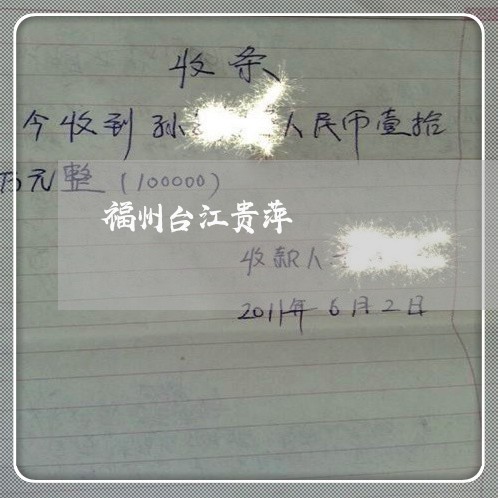 收条
今收到孙 人民币壹拾
万元整（100000）
福州台江贵萍
收款人
2011年6月2日